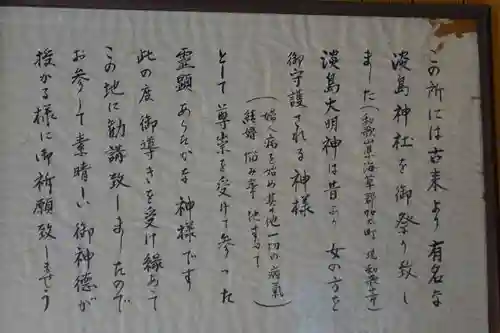 この所には古来より有名な
淡島神社を御祭り致し
ました(和歌山県海草郡加太町 現和歌山市)
淡島大明神は昔より女の方を
御守護される神様
(婦人病を始め其の他一切の病気
結婚 悩み事 他すべて)
として尊崇を受けて参った
霊顕あらたかな神様です
此の度御導きを受け縁あって
この地に勧請致しましたので
お参りして素晴しい御神徳が
授かる様に御祈願致しましょう